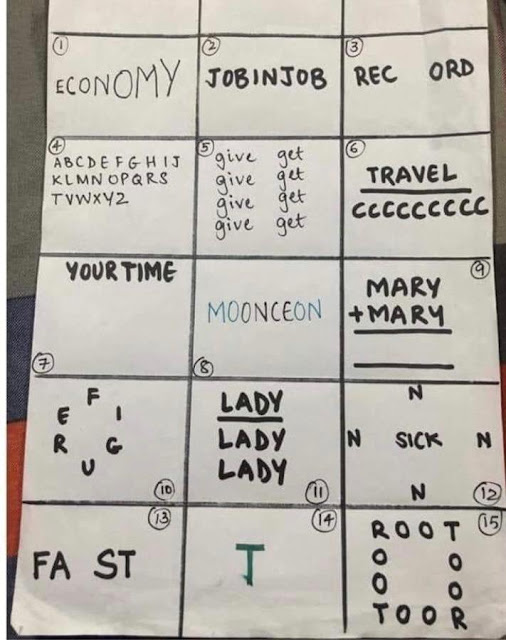 1
ECONOMY
2
JOBINJOB
3
REC ORD
4
ABCDEFGHIJ
KLMNOPQRS
TVWXYZ
5
give get
give get
give get
give get
6
TRAVEL
CCCCCCCCC
YOUR TIME
7
MOONCEON
8
9
MARY
+MARY
F
E I
R G
U
10
LADY
LADY
LADY
11
N
N SICK N
N
12
13
FA ST
14
T
15
ROOT
O O
O O
TOOR